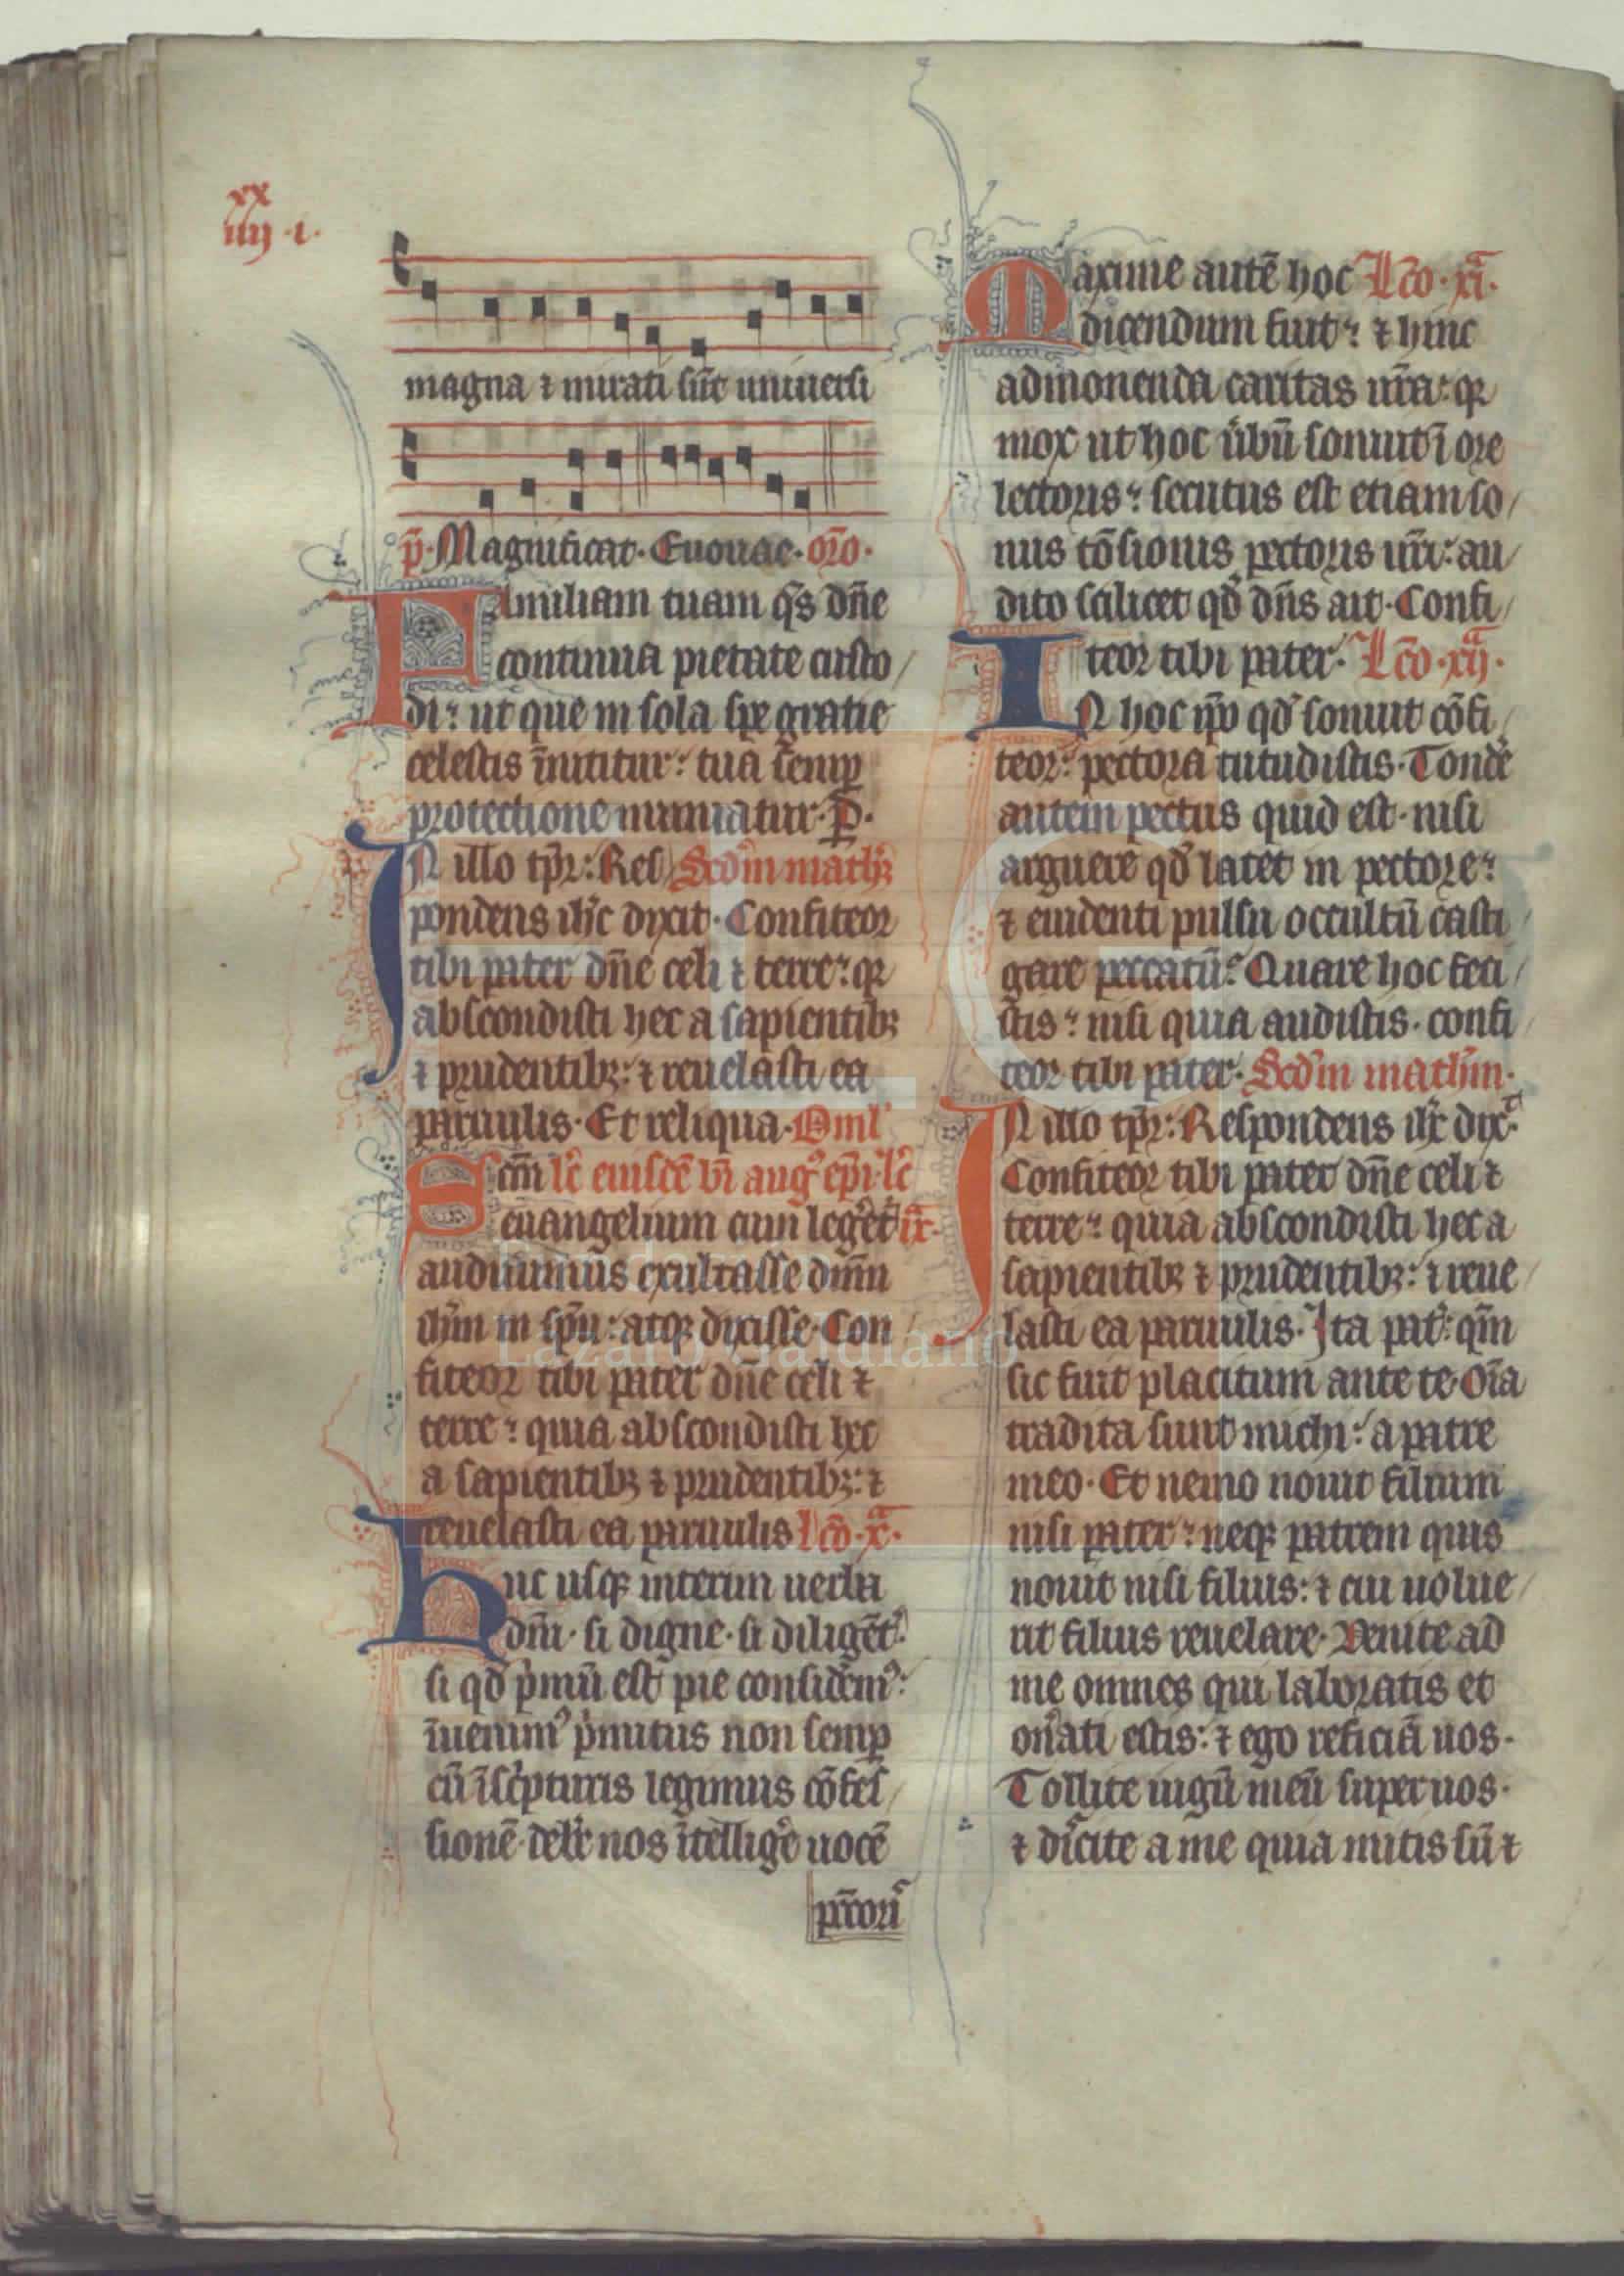 xx
iiij .i.
magna ⁊ mirati sūt uniuersi
p̄. Magnificat. Euouae. or̄o.
Familiam tuam q̄s dn̄e
continua pietate custo/
di: ut que in sola spe gratie
celestis īnititur: tua semp̄
protectione muniatur. P.
IN illo tp̄r: Res Scd̄m math̄
pondens ih̄c dixit. Confiteor
tibi pater dn̄e celi ⁊ terre: qr
abscondisti hec a sapientibꝫ
⁊ prudentibꝫ: ⁊ reuelasti ea
paruulis. Et reliqua. Oml'
Scm̄ lc̄ eiusdē bī aug᷒ ep̄i. lc̄
euangelium cum leger̄et᷒ ix.
audiuimus exultasse dn̄m
ih̄m in sp̄u: atqꝫ dixisse. Con/
fiteor tibi pater dn̄e celi ⁊
terre: quia abscondisti hec
a sapientibꝫ ⁊ prudentibꝫ: ⁊
reuelasti ea paruulis lc̄o. x.
huc usqꝫ interim uerba
dn̄i. si digne. si diligēt᷒.
si qd̄ p̄mū est pie considem᷒:
īuenim᷒ p̄mitus non semp̄
cū īscripturis legimus cōfes/
sionē. deb̄e nos ītelligē uocē
pc̄cori᷒
Maxime autē hoc Lc̄o. xi.
dicendum fuit: ⁊ hinc
admonenda caritas ur̄a: qr
mox ut hoc ūbū sonuit ī ore
lectoris: secutus est etiam so/
nus tōsionis pectoris ur̄i: au/
dito scilicet qd̄ dn̄s ait. Confi/
teor tibi pater. Lc̄o. xij.
IN hoc ip̄o qd̄ sonuit cōfi/
teor: pectora tutudistis. Tonde᷒
autem pectus quid est. nisi
arguere qd̄ latet in pectore:
⁊ euidenti pulsu occultū casti/
gare peccatū? Quare hoc feci/
stis: nisi quia audistis. confi/
teor tibi pater. Scd̄m math̄m.
IN illo tp̄r: Respondens ih̄c dix̄t
Confiteor tibi pater dn̄e celi ⁊
terre: quia abscondisti hec a
sapientibꝫ ⁊ prudentibꝫ: ⁊ reue/
lasti ea paruulis. Ita pat̄: qm̄
sic fuit placitum ante te. Oīa
tradita sunt michi: a patre
meo. Et nemo nouit filium
nisi pater: neqꝫ patrem quis
nouit nisi filius: ⁊ cui uolue/
rit filius reuelare. Venite ad
me omnes qui laboratis et
on̄ati estis: ⁊ ego reficiā uos.
Tollite iugū meū super uos.
⁊ dīcite a me quia mitis sū ⁊
FLG
Fundación
Lázaro Galdiano